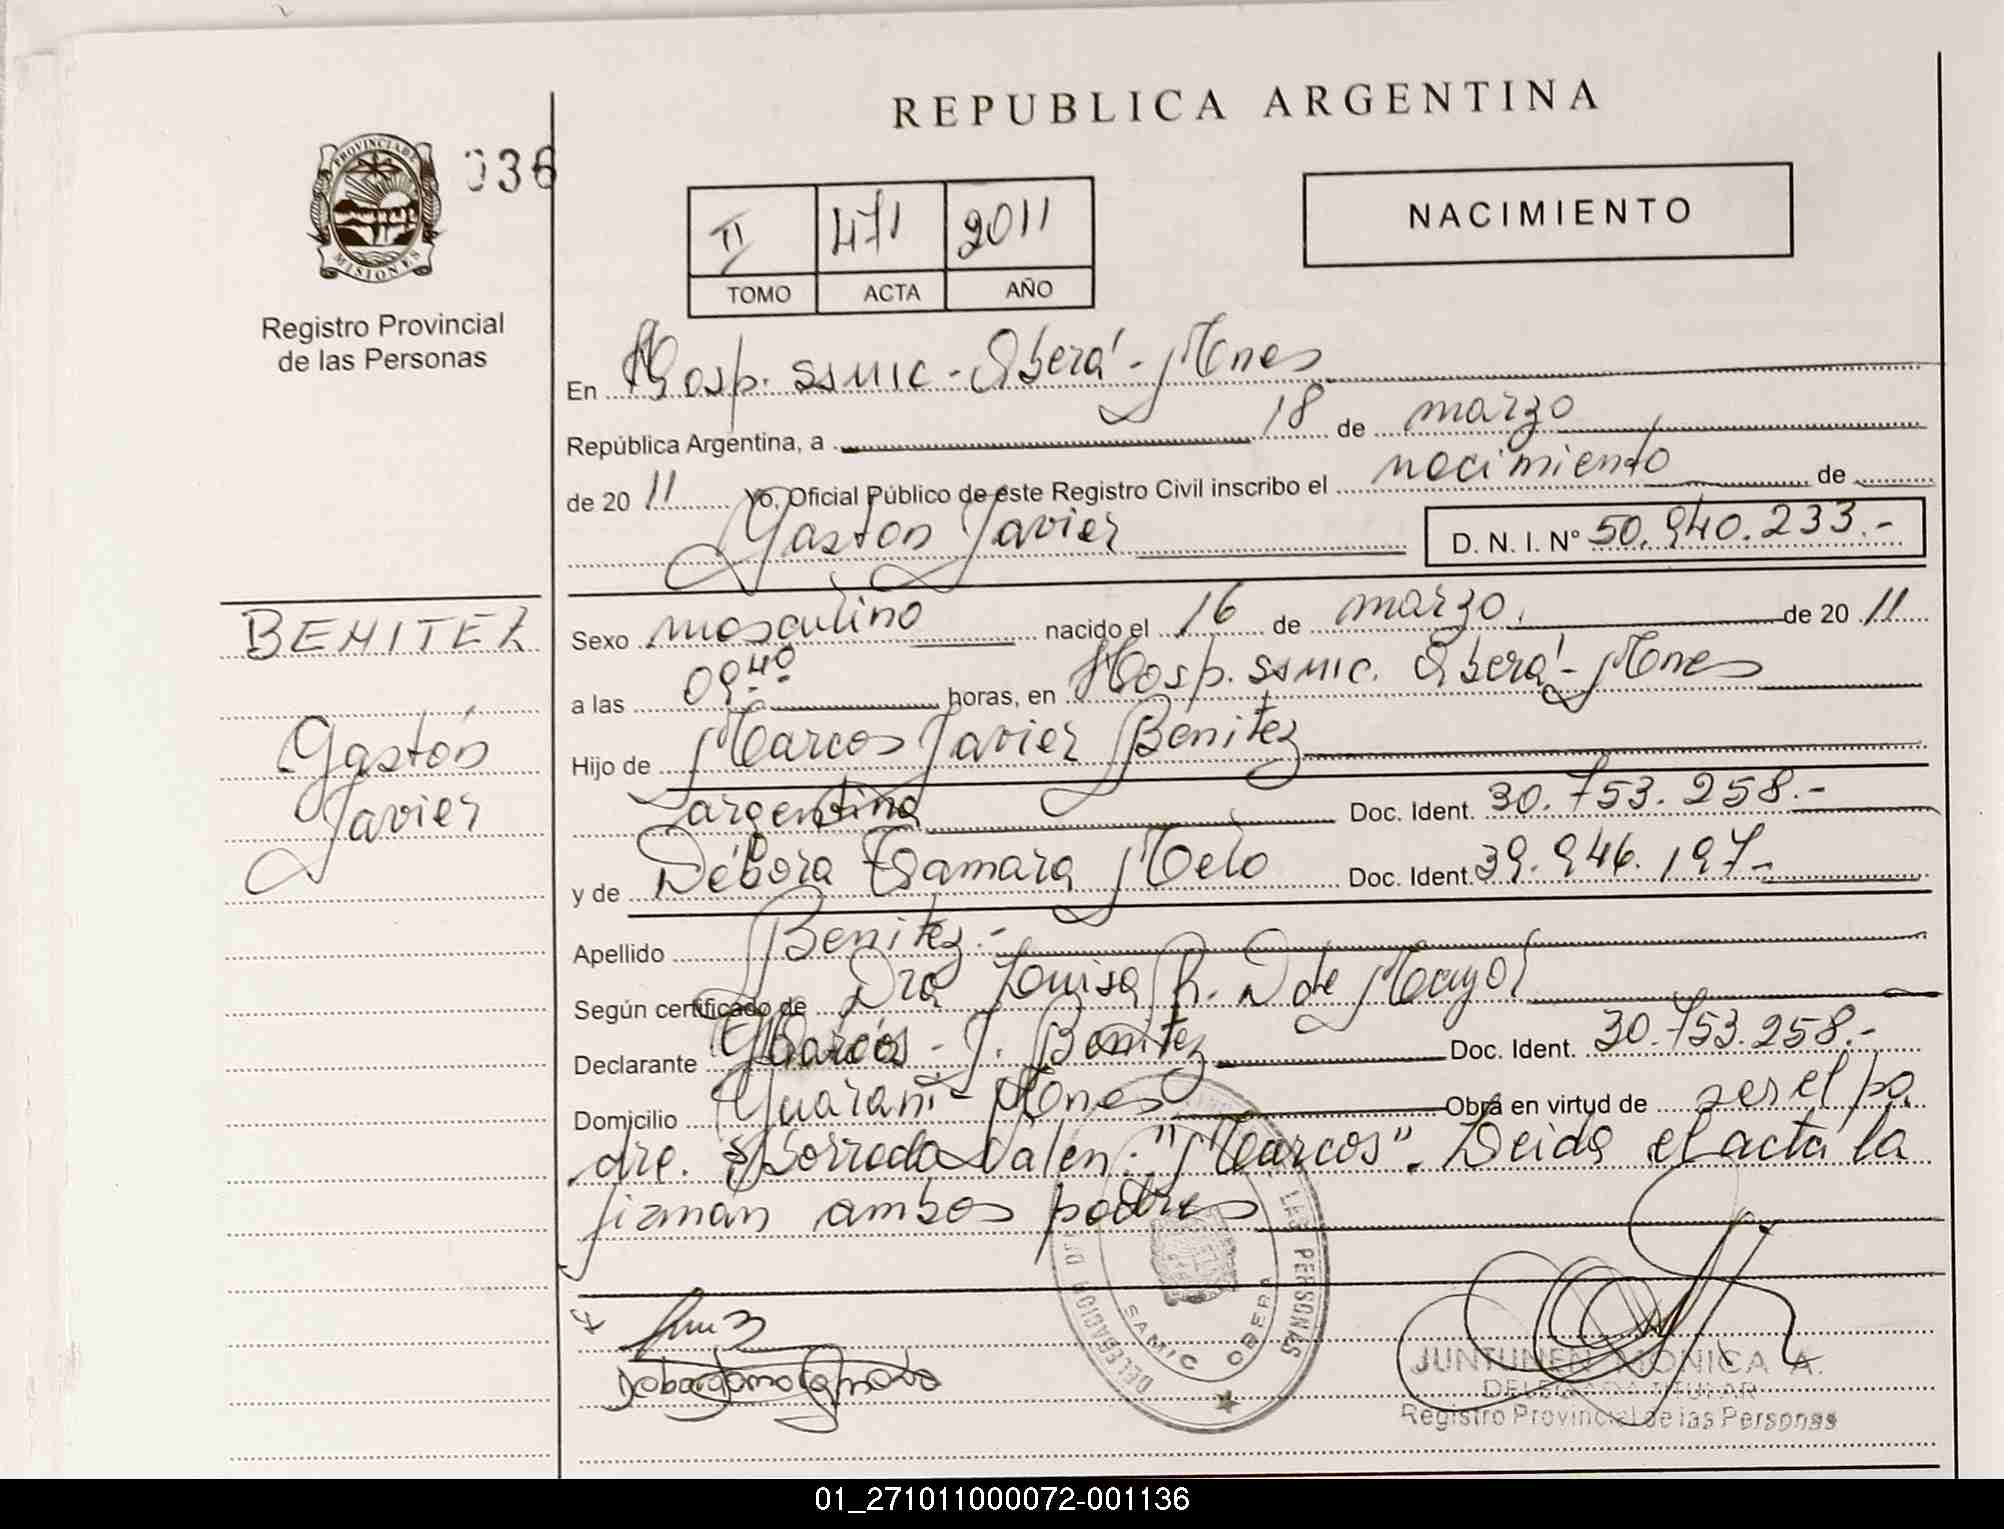 REPUBLICA ARGENTINA
PROVINCIA DE
MISIONES
036
Registro Provincial
de las Personas
II 471 2011
TOMO ACTA AÑO
NACIMIENTO
En Hosp. SSMIC - Oberá - Mnes
República Argentina, a 18 de marzo
de 20 11 Yo, Oficial Público de este Registro Civil inscribo el nacimiento de
Gastón Javier D. N. I. Nº 50.940.233.-
BENITEZ
Gastón
Javier
Sexo masculino nacido el 16 de marzo. de 20 11
a las 09.40 horas, en Hosp. SSMIC. Oberá - Mnes
Hijo de Marcos Javier Benitez
argentina Doc. Ident. 30.753.258.-
y de Débora Tamara Melo Doc. Ident. 39.946.197-
Apellido Benitez.-
Según certificado de Dra Louisa R. D de Mayol
Declarante Marcos - J. Benitez Doc. Ident. 30.753.258.-
Domicilio Guaraní - Mnes Obra en virtud de ser el pa
dre. Borrado Valen: "Marcos". Leida el acta la
firman ambos padres
DELEGACION DE LAS PERSONAS
SAMIC OBERA
JUNTUNEN MONICA A.
DELEGADA TITULAR
Registro Provincial de las Personas
01_271011000072-001136